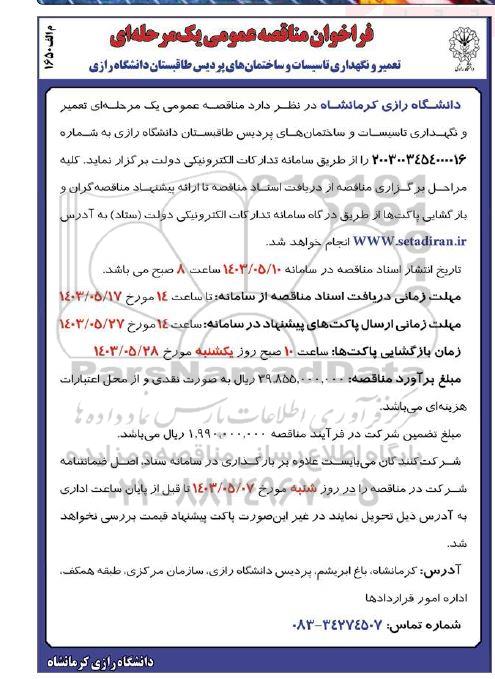 م الف ۱۶۵۰
فراخوان مناقصه عمومی یک مرحله‌ای
تعمیر و نگهداری تاسیسات و ساختمان‌های پردیس طاقبستان دانشگاه رازی
دانشگاه رازی کرمانشاه در نظر دارد مناقصه عمومی یک مرحله‌ای تعمیر
و نگهداری تاسیسات و ساختمان‌های پردیس طاقبستان دانشگاه رازی به شماره
۲۰۰۳۰۰۳۴۵۴۰۰۰۰۱۶ را از طریق سامانه تدارکات الکترونیکی دولت برگزار نماید. کلیه
مراحل برگزاری مناقصه از دریافت اسناد مناقصه تا ارائه پیشنهاد مناقصه‌گران و
بازگشایی پاکت‌ها از طریق درگاه سامانه تدارکات الکترونیکی دولت (ستاد) به آدرس
WWW.setadiran.ir انجام خواهد شد.
تاریخ انتشار اسناد مناقصه در سامانه ۱۴۰۳/۰۵/۱۰ ساعت ۸ صبح می باشد.
مهلت زمانی دریافت اسناد مناقصه از سامانه: تا ساعت ۱۴ مورخ ۱۴۰۳/۰۵/۱۷
مهلت زمانی ارسال پاکت‌های پیشنهاد در سامانه: ساعت ۱۴ مورخ ۱۴۰۳/۰۵/۲۷
زمان بازگشایی پاکت‌ها: ساعت ۱۰ صبح روز یکشنبه مورخ ۱۴۰۳/۰۵/۲۸
مبلغ برآورد مناقصه: ۳۹،۸۵۵،۰۰۰،۰۰۰ ریال به صورت نقدی و از محل اعتبارات
هزینه‌ای می‌باشد.
مبلغ تضمین شرکت در فرآیند مناقصه ۱،۹۹۰،۰۰۰،۰۰۰ ریال می‌باشد.
شرکت‌کنندگان می‌بایست علاوه بر بارگذاری در سامانه ستاد، اصل ضمانتنامه
شرکت در مناقصه را در روز شنبه مورخ ۱۴۰۳/۰۵/۰۷ تا قبل از پایان ساعت اداری
به آدرس ذیل تحویل نمایند در غیر این‌صورت پاکت پیشنهاد قیمت بررسی نخواهد
شد.
آدرس: کرمانشاه، باغ ابریشم، پردیس دانشگاه رازی، سازمان مرکزی، طبقه همکف،
اداره امور قراردادها
شماره تماس: ۳۴۲۷۴۵۰۷-۰۸۳
دانشگاه رازی کرمانشاه
ParsNamadData
مرکز فرآوری اطلاعات پارس نماد داده ها
پایگاه اطلاع رسانی مناقصه و مزایده
۰۲۱-۸۸۳۴۹۶۷۰-۵